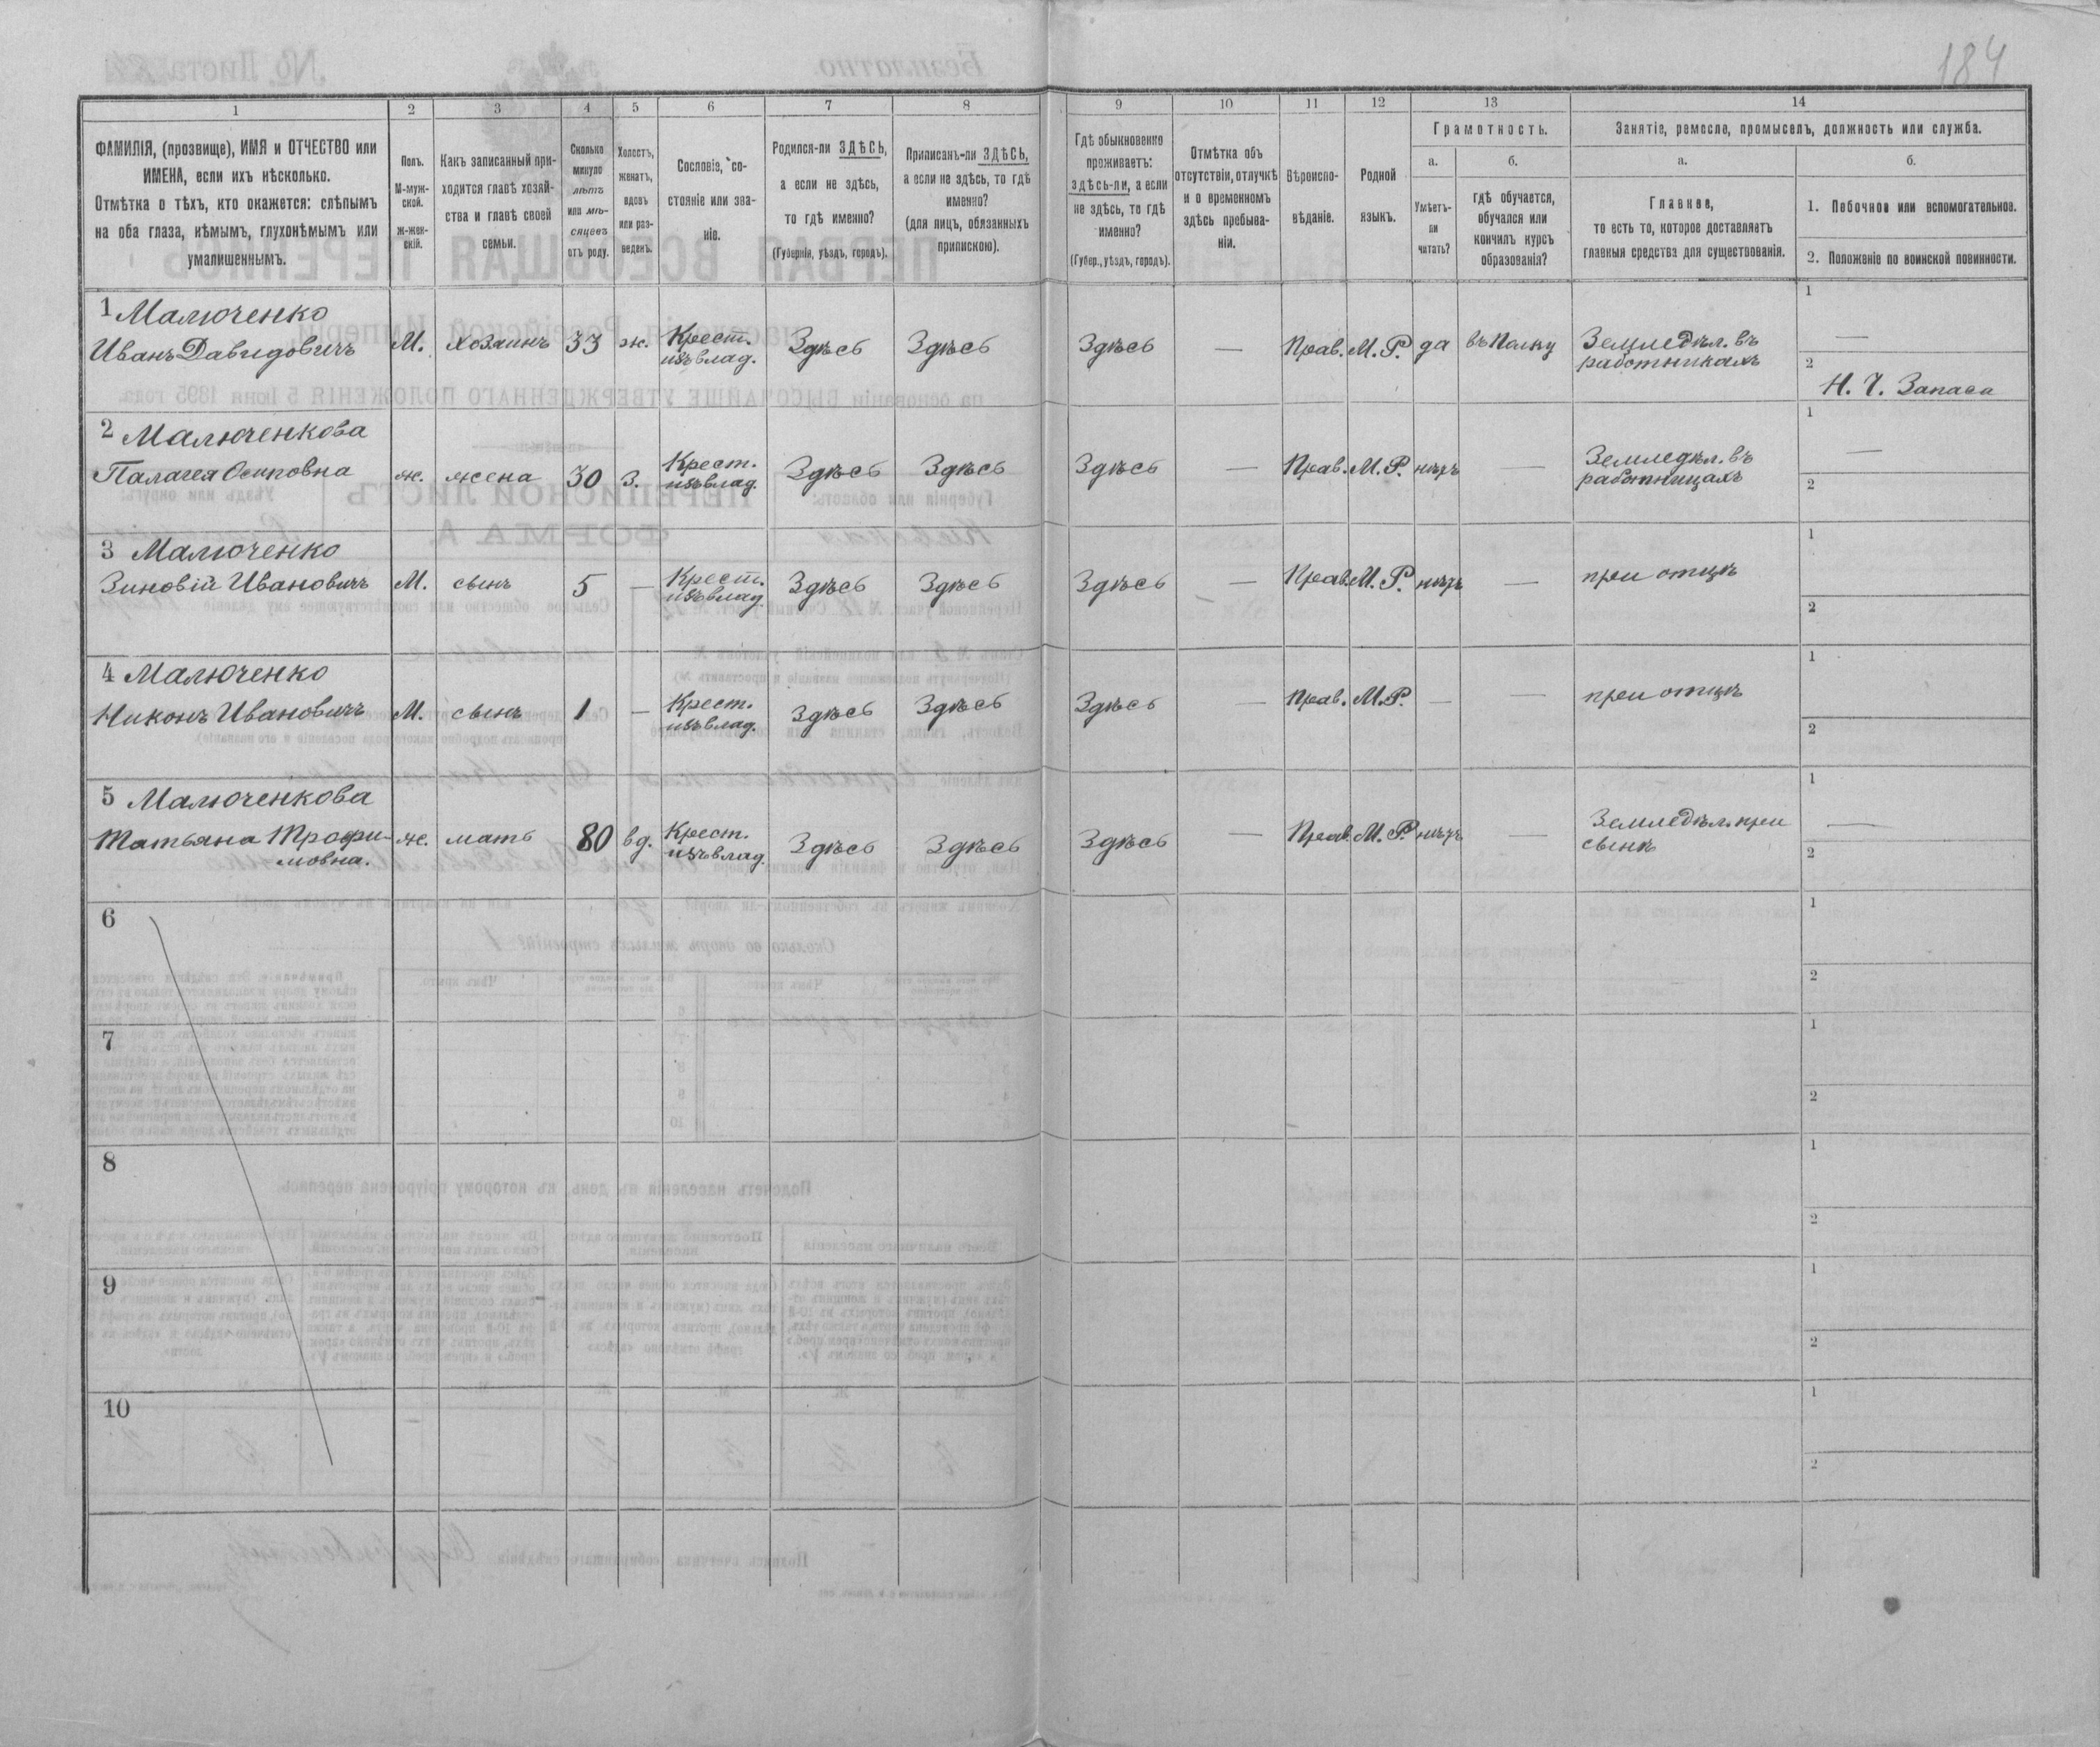 184
1
2
3
4
5
6
7
8
9
10
11
12
13
14
ФАМИЛІЯ, (прозвище), ИМЯ и ОТЧЕСТВО или
ИМЕНА, если ихъ нѣсколько.
Отмѣтка о тѣхъ, кто окажется: слѣпымъ
на оба глаза, нѣмымъ, глухонѣмымъ или
умалишеннымъ.
Полъ.
М-муж-
ской.
ж-жен-
скій.
Какъ записанный при-
ходится главѣ хозяй-
ства и главѣ своей
семьи.
Сколько
минуло
лѣтъ
или мѣ-
сяцевъ
отъ роду.
Холостъ,
женатъ,
вдовъ
или раз-
веденъ.
Сословіе, со-
стояніе или зва-
ніе.
Родился-ли ЗДѢСЬ,
а если не здѣсь,
то гдѣ именно?
(Губернія, уѣздъ, городъ).
Приписанъ-ли ЗДѢСЬ,
а если не здѣсь, то гдѣ
именно?
(для лицъ, обязанныхъ
припискою).
Гдѣ обыкновенно
проживаетъ:
здѣсь-ли, а если
не здѣсь, то гдѣ
именно?
(Губер., уѣздъ, городъ).
Отмѣтка объ
отсутствіи, отлучкѣ
и о временномъ
здѣсь пребыва-
ніи.
Вѣроиспо-
вѣданіе.
Родной
языкъ.
Грамотность.
а.
Умѣетъ-
ли
читать?
б.
гдѣ обучается,
обучался или
кончилъ курсъ
образованія?
Занятіе, ремесло, промыселъ, должность или служба.
а.
Главное,
то есть то, которое доставляетъ
главныя средства для существованія.
б.
1. Побочное или вспомогательное.
2. Положеніе по воинской повинности.
1 Малюченко
Иванъ Давидовичъ М. хозаинъ 33 ж. Крест. изъ влад. Здѣсь Здѣсь Здѣсь — Прав. М. Р. да въ Полку Земледѣл. въ работникахъ
1 —
2 Н. Ч. Запаса
2 Малюченкова
Палагея Осиповна ж. жена 30 з. Крест. изъ влад. Здѣсь Здѣсь Здѣсь — Прав. М. Р. нѣтъ — Земледѣл. въ работницахъ
1 —
2
3 Малюченко
Зиновій Ивановичъ М. сынъ 5 — Крест. изъ влад. Здѣсь Здѣсь Здѣсь — Прав. М. Р. нѣтъ — при отцѣ
1
2
4 Малюченко
Никонъ Ивановичъ М. сынъ 1 — Крест. изъ влад. Здѣсь Здѣсь Здѣсь — Прав. М. Р. — — при отцѣ
1
2
5 Малюченкова
Татьяна Трофи-
мовна. ж. мать 80 вд. Крест. изъ влад. Здѣсь Здѣсь Здѣсь — Прав. М. Р. нѣтъ — Земледѣл. при сынѣ
1 —
2
6
1
2
7
1
2
8
1
2
9
1
2
10
1
2